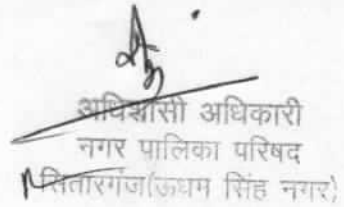 अधिशासी अधिकारी
नगर पालिका परिषद
सितारगंज(ऊधम सिंह नगर)